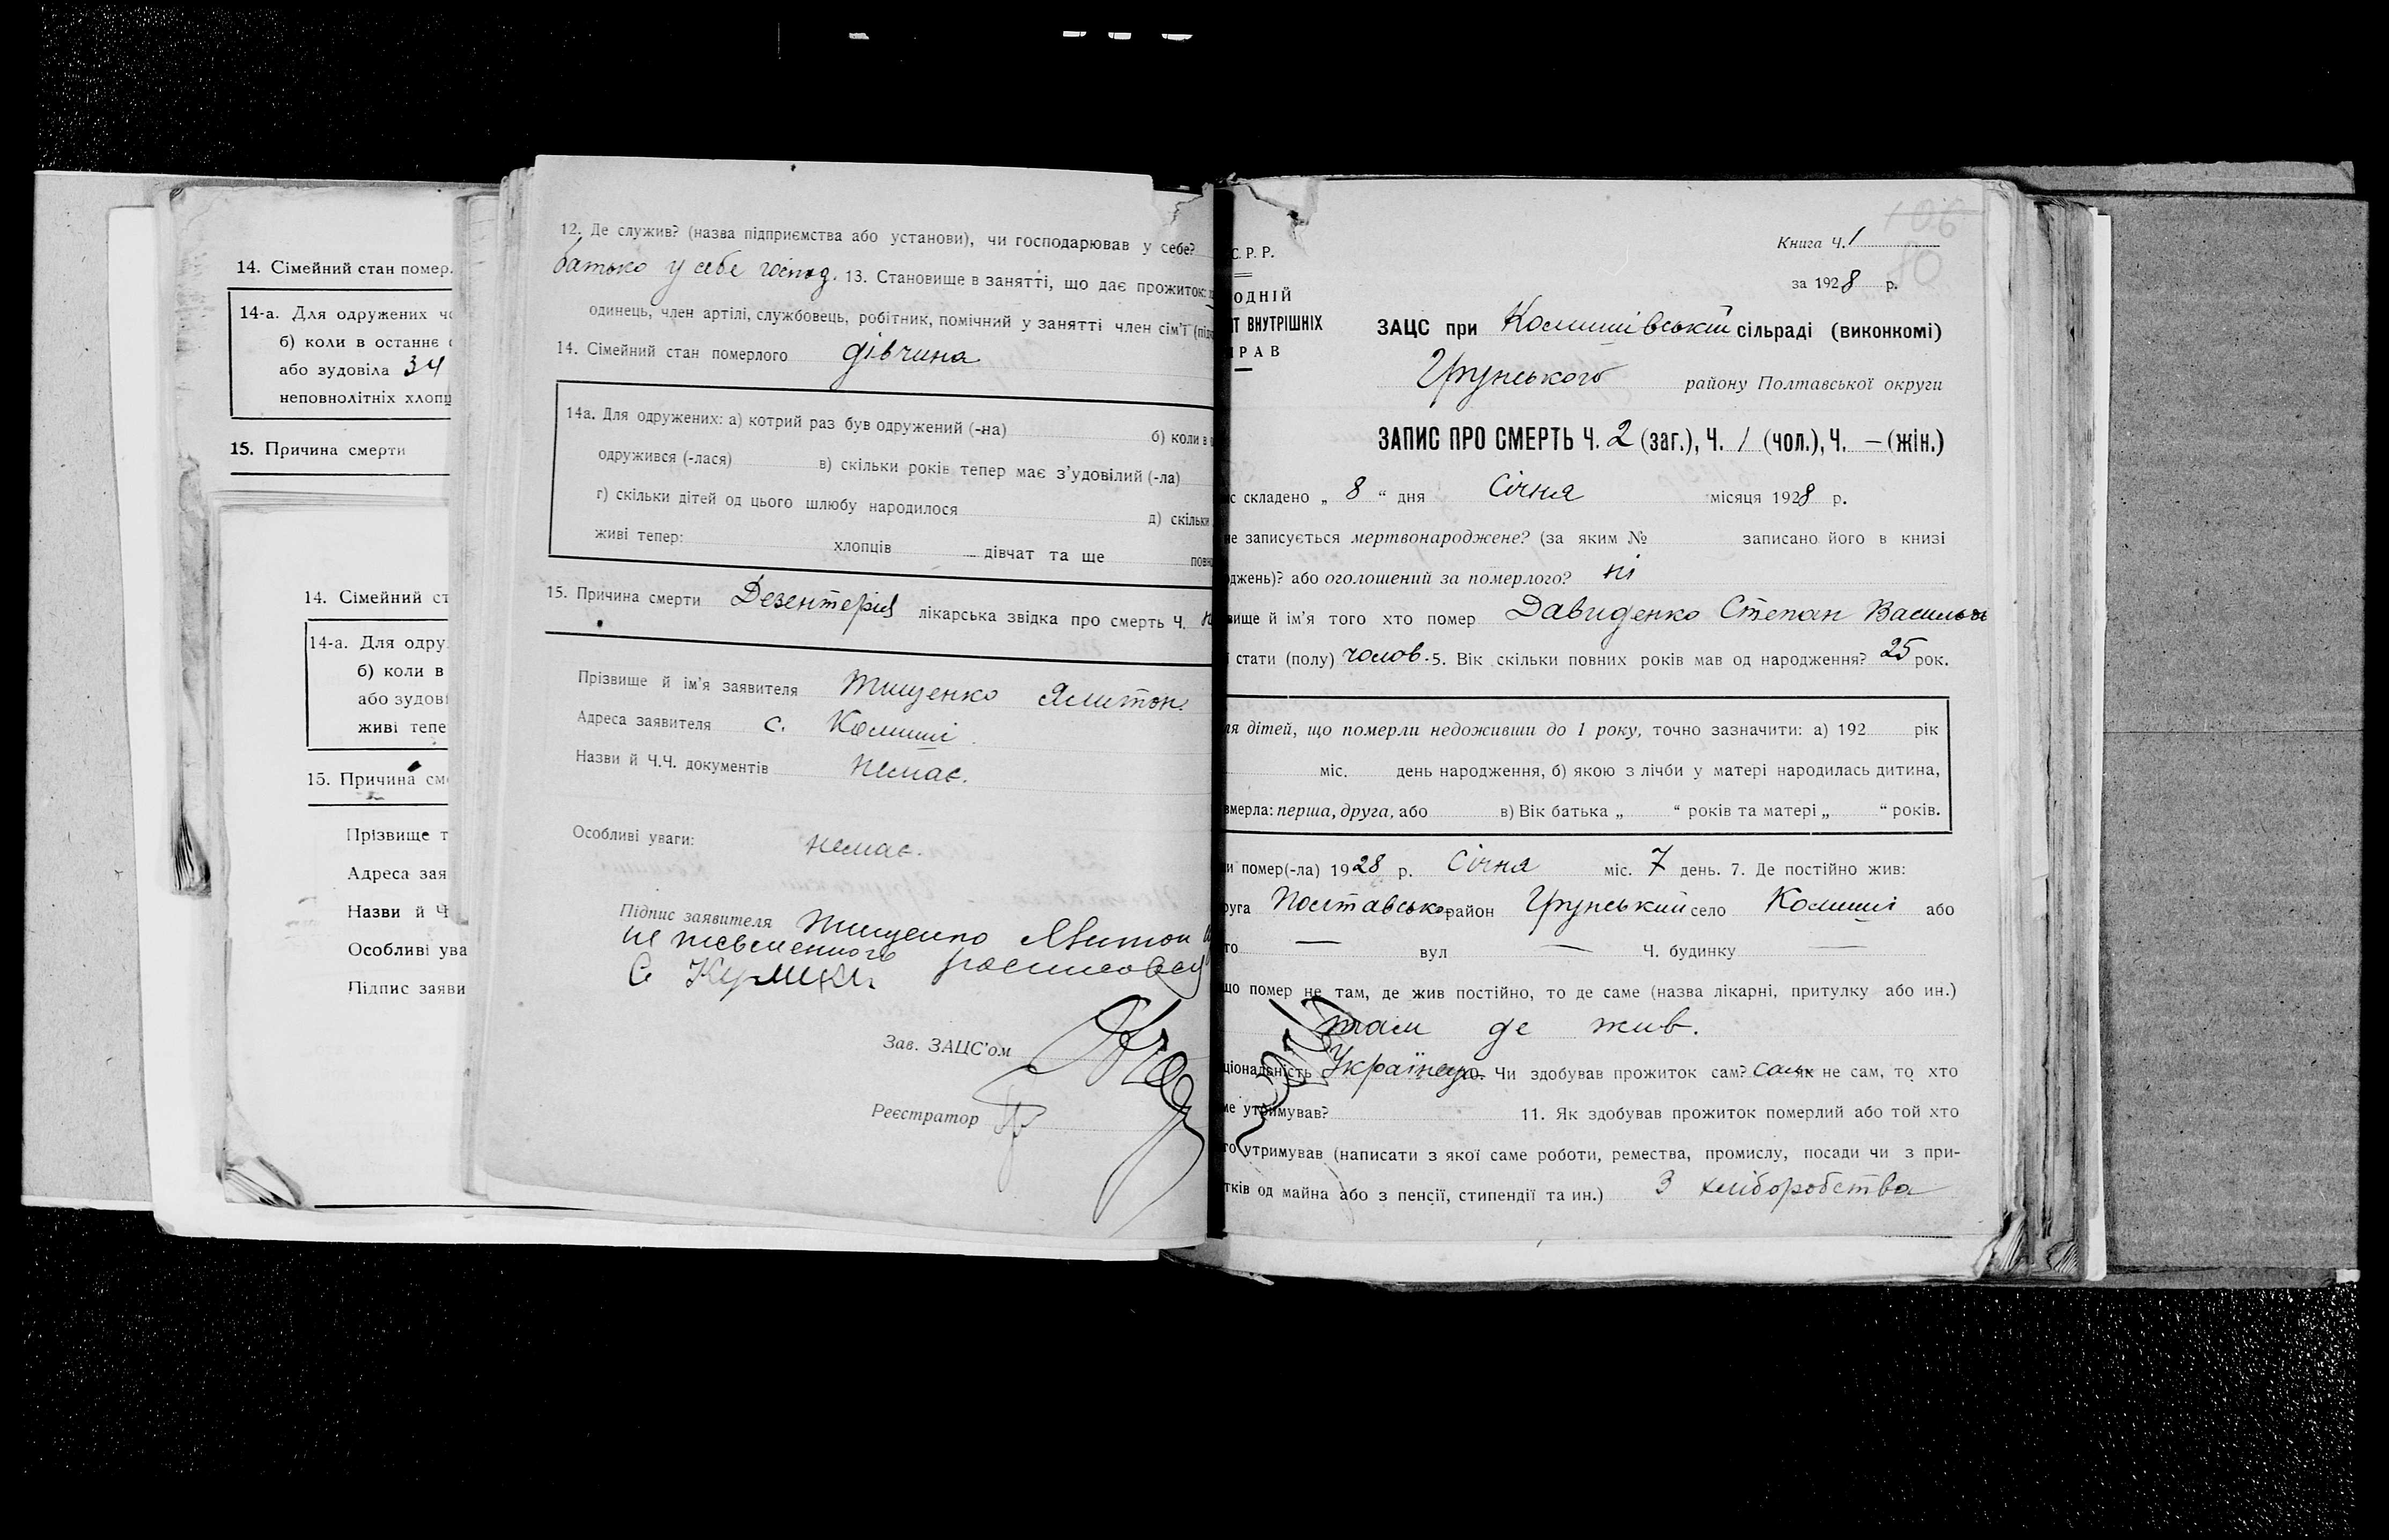 14. Сімейний стан помер.
14-а. Для одружених
б) коли в останнє
або зудовіла 34
неповнолітніх хлопц
15. Причина смерти
14. Сімейний ст
14-а. Для одру
б) коли в
або зудові
живі тепе
15. Причина см
Прізвище т
Адреса зая
Назви й Ч
Особливі ува
Підпис заяви
12. Де служив? (назва підприємства або установи), чи господарював у себе?
батько у себе господ. 13. Становище в занятті, що дає прожиток:
одинець, член артілі, службовець, робітник, помічний у занятті член сім'ї (під
14. Сімейний стан померлого дівчина
14а. Для одружених: а) котрий раз був одружений (-на) б) коли в
одружився (-лася) в) скільки років тепер має з'удовілий (-ла)
г) скільки дітей од цього шлюбу народилося д) скільки
живі тепер: хлопців дівчат та ще повн
15. Причина смерти Дезентерія лікарська звідка про смерть Ч.
Прізвище й ім'я заявителя Тищенко
Адреса заявителя с. Комиші
Назви й Ч.Ч. документів немає.
Особливі уваги: немає.
Підпис заявителя Тищенко
С
Зав. ЗАЦС'ом
Реєстратор
106
Книга Ч. 1
С. Р. Р.
за 1928 р.
ОДНІЙ
Т ВНУТРІШНІХ
РАВ
ЗАЦС при Комишівській сільраді (виконкомі)
Грунського району Полтавської округи
ЗАПИС ПРО СМЕРТЬ Ч. 2 (заг.), Ч. 1 (чол.), Ч. — (жін.)
с складено „ 8 “ дня Січня місяця 1928 р.
не записується мертвонароджене? (за яким № записано його в книзі
джень)? або оголошений за померлого? ні
вище й ім'я того хто помер Давиденко Степан Васильов
стати (полу) чолов. 5. Вік скільки повних років мав од народження? 25 рок.
ля дітей, що померли недоживши до 1 року, точно зазначити: а) 192 рік
міс. день народження, б) якою з лічби у матері народилась дитина,
вмерла: перша, друга, або в) Вік батька „ “ років та матері „ “ років.
и помер(-ла) 1928 р. Січня міс. 7 день. 7. Де постійно жив:
руга Полтавськ. район Грунський село Комиші або
то — вул — Ч. будинку —
що помер не там, де жив постійно, то де саме (назва лікарні, притулку або ин.)
там де жив.
ціональність Українець 10. Чи здобував прожиток сам? сам як не сам, то хто
ме утримував? 11. Як здобував прожиток померлий або той хто
го утримував (написати з якої саме роботи, ремества, промислу, посади чи з при-
тків од майна або з пенсії, стипендії та ин.) З хліборобства